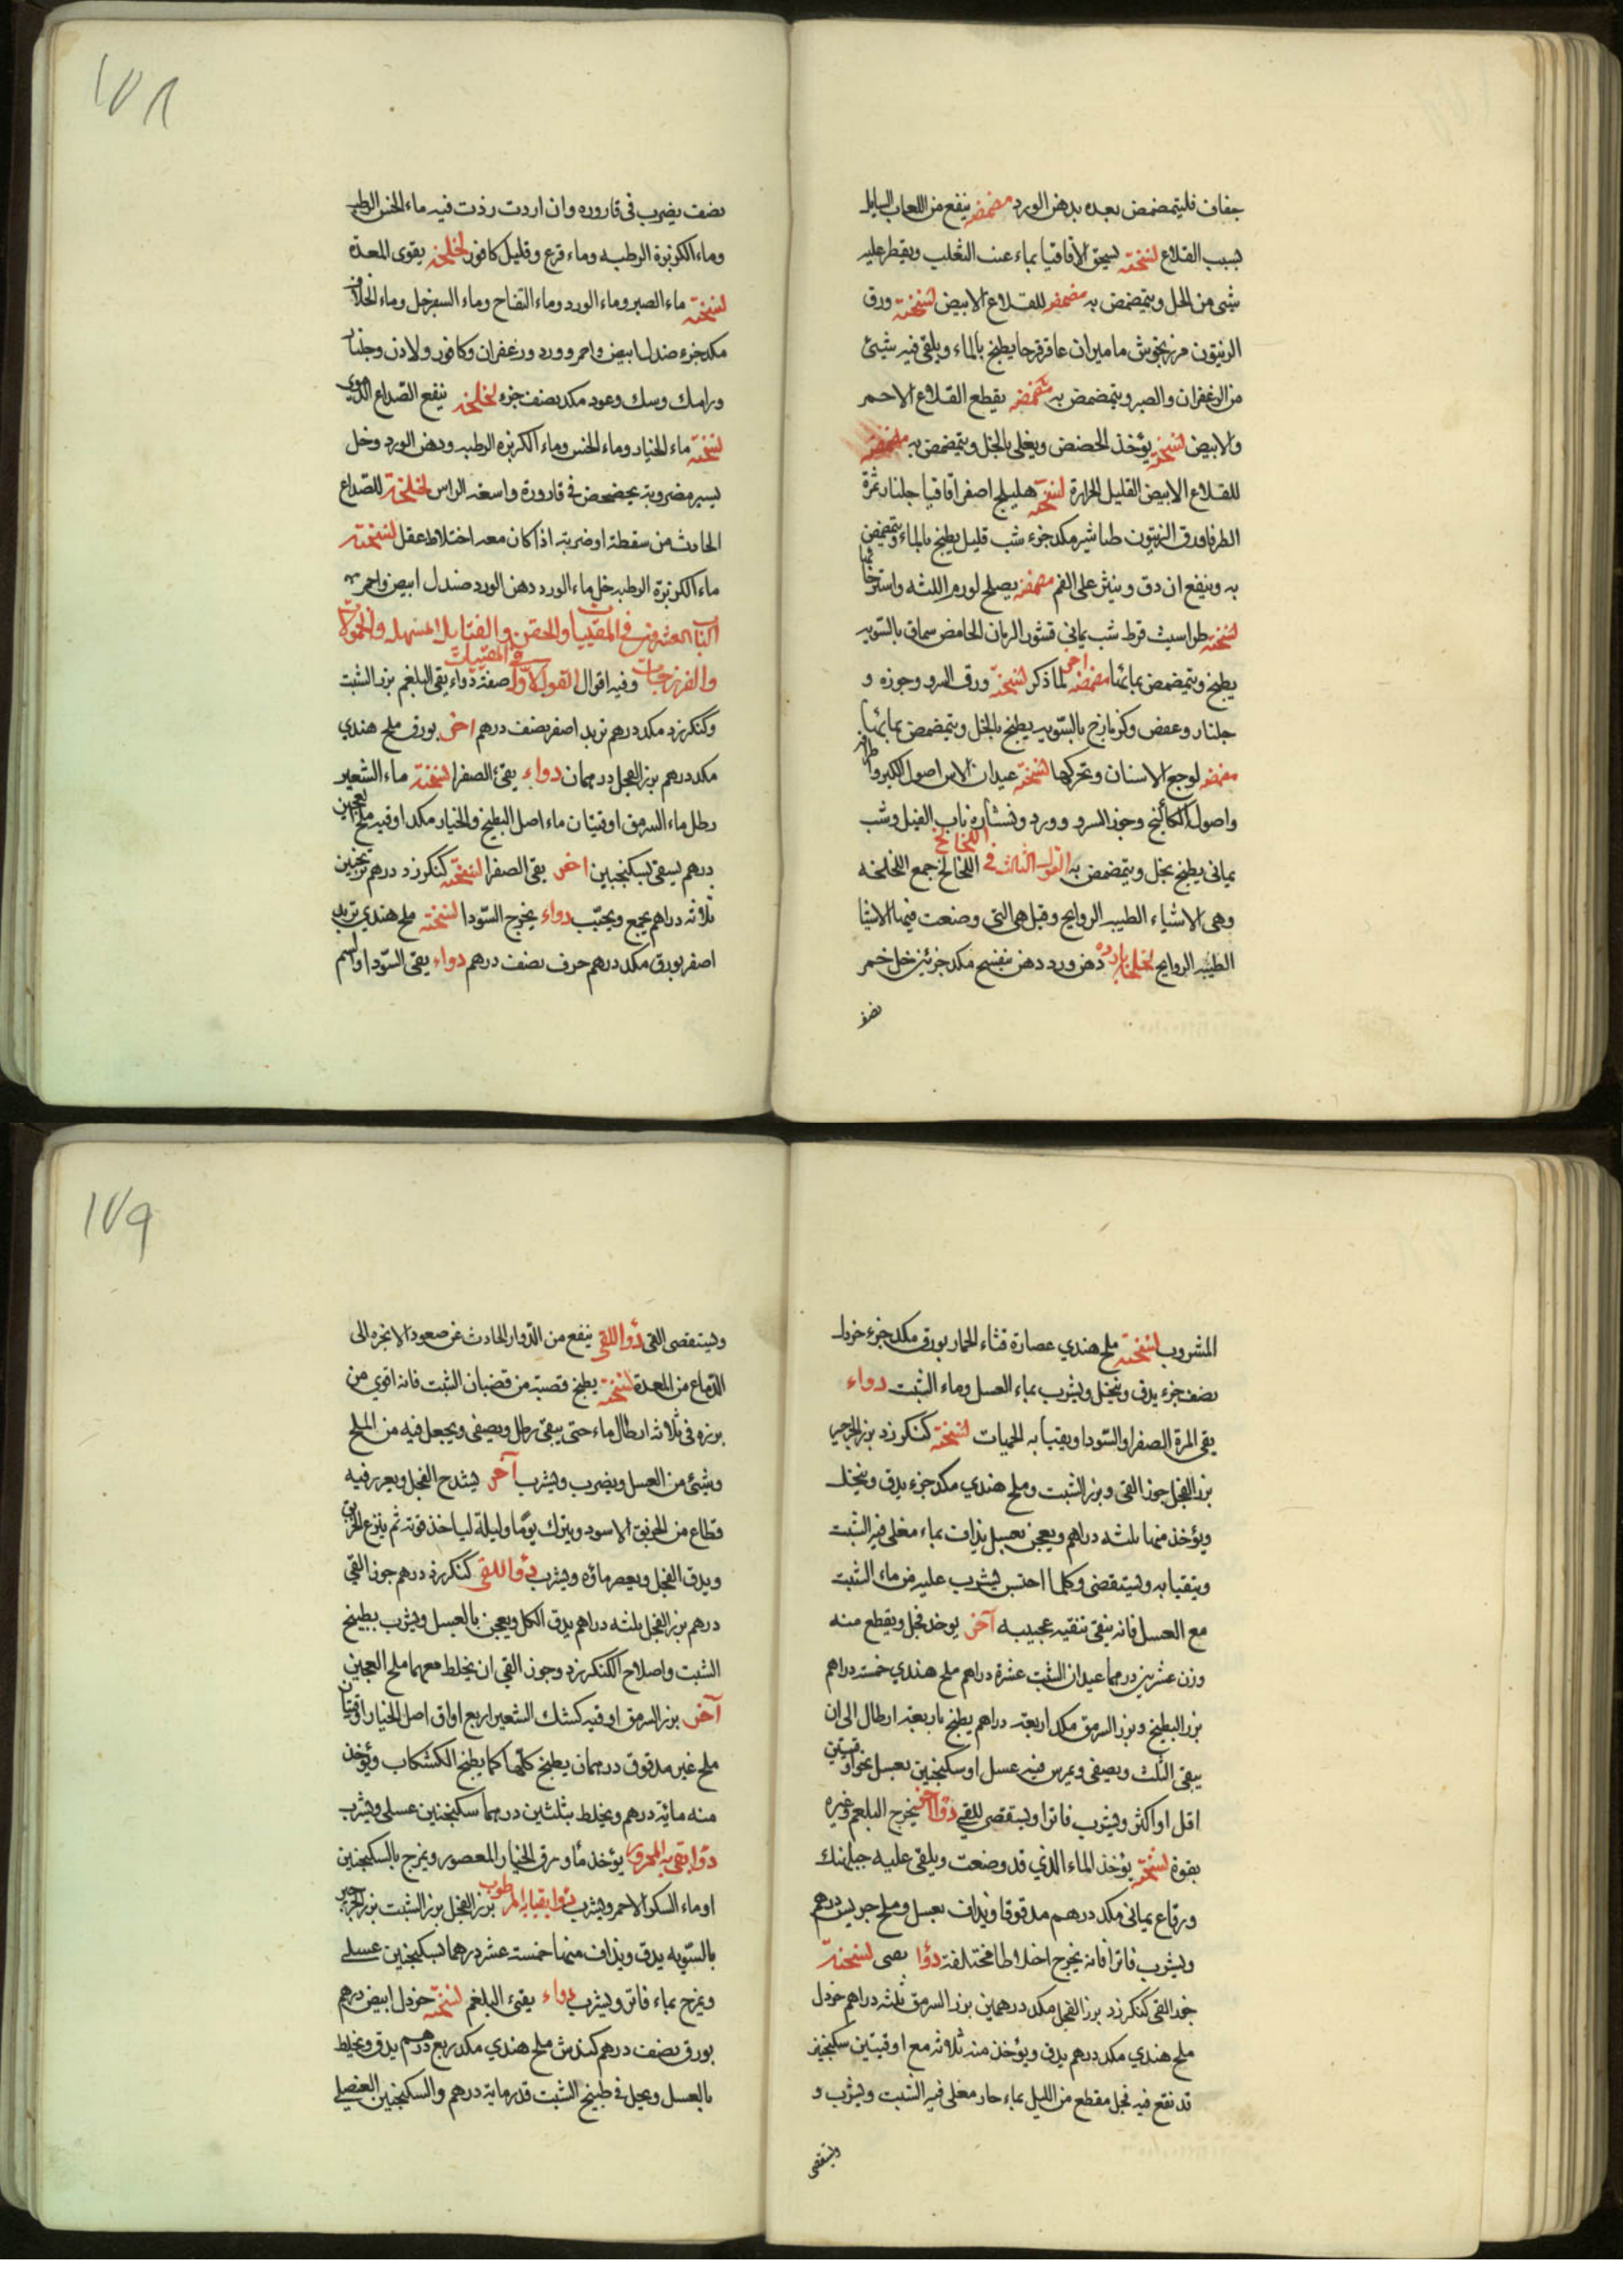 ١٧٨
جفاف فليتمضمض بعده بدهن الورد مضمضه ينفع من اللعاب السايل
بسبب القلاع نسخته يسحق الاقاقيا بماء عنب الثعلب ويقطر عليه
شى من الخل ويتمضمض به مضمضه للقلاع الابيض نسخته ورق
الزيتون مرزنجوش ماميران عاقرقرحا يطبخ بالماء ويلقى فيه شئ
من الزعفران والصبر ويتمضمض به مضمضه يقطع القلاع الاحمر
والابيض نسخته يؤخذ الحضض ويغلى بالخل ويتمضمض به مضمضه
للقلاع الابيض القليل الحرارة نسخته هليلج اصفر اقاقيا جلنار ثمرة
الطرفا ورق الزيتون طباشير مكد جزء شب قليل يطبخ بالماء ويتمضمض
به وينفع ان دق وينثر على الفم مضمضه يصلح لورم اللثه واسترخائها
نسخته طراسيث قرط شب يمانى قشور الرمان الحامض سماق بالسويه
يطبخ ويتمضمض بمائها مضمضه اخرى لما ذكر نسخته ورق السرو وجوزه و
جلنار وعفص وكزمازج بالسويه يطبخ بالخل ويتمضمض بمائها
مضمضه لوجع الاسنان وتحركها نسخته عيدان الاس اصول الكبر
واصول الكاكنج وجوز السرو وورد ونشاره ناب الفيل وشب
يمانى يطبخ بخل ويتمضمض به القول الثالث فى اللخالخ اللخالخ جمع اللخلخه
وهى الاشياء الطيبه الروايح وقيل هى التى وضعت فيها الاشيا
الطيبه الروايح لخلخه بارده دهن ورد دهن بنفسج مكد جزئين خل خمر
نصف
نصف يضرب فى قاروره وان اردت زدت فيه ماء الخس الرطب
وماء الكزبرة الرطبه وماء قرع وقليل كافور لخلخه يقوى المعدة
نسخته ماء الصبر وماء الورد وماء التفاح وماء السفرجل وماء الخلاف
مكد جزء صندل ابيض واحمر وورد وزعفران وكافور ولادن وجلنار
ورامك وسك وعود مكد نصف جزء لخلخه ينفع الصداع الدموى
نسخته ماء الخيار وماء الخس وماء الكزبره الرطبه ودهن الورد وخل
يسير مضروبه يخضخض فى قارورة واسعة الراس لخلخة للصداع
الحادث من سقطة او ضربة اذا كان معه اختلاط عقل نسخته
ماء الكزبرة الرطبه خل ماء الورد دهن الورد صندل ابيض واحمر
الباب العشرون فى المقييات والحقن والفتايل المسهله والحمولات
والفرزجات وفيه اقوال القول الاول فى المقييات صفة دواء يقى البلغم بزر الشبت
وكنكرزد مكد درهم تربد اصفر نصف درهم اخر بورق ملح هندي
مكد درهم بزر الفجل درهمان دواء يقئ الصفرا نسخته ماء الشعير
رطل ماء السرمق اوقيتان ماء اصل البطيخ والخيار مكد اوقيه ملح العجين
درهم يسقى بسكنجبين اخر يقى الصفرا نسخته كنكرزد درهم ترنجبين
ثلاثه دراهم يجمع ويحبب دواء يخرج السودا نسخته ملح هندي تربد
اصفر بورق مكد درهم حرف نصف درهم دواء يقى السودا واسم
١٧٩
المشروب نسخته ملح هندي عصارة قثاء الحمار بورق مكد جزء خردل
نصف جزء يدق وينخل ويشرب بماء العسل وماء الشبت دواء
يقى المرة الصفرا والسودا ويقيأ به الحميات نسخته كنكرزد بزر الجرجير
بزر الفجل جوز القى وبزر الشبت وملح هندي مكد جزء يدق وينخل
ويؤخذ منها ثلثه دراهم ويعجن بعسل يذاف بماء مغلى فيه الشبت
ويتقيا به ويستقصى وكلما احتبس يشرب عليه من ماء الشبت
مع العسل فانه ينقى تنقيه عجيبه آخر يوخذ فجل ويقطع منه
وزن عشرين درهما عيدان الشبت عشرة دراهم ملح هندي خمسه دراهم
بزر البطيخ وبزر السرمق مكد اربعة دراهم يطبخ باربعة ارطال الى ان
يبقى الثلث ويصفى ويمرس فيه عسل او سكنجبين بعسل نحو اوقيتين
اقل او اكثر ويشرب فاترا ويستقصى للقى دوا اخر يخرج البلغم وغيره
بقوة نسخته يؤخذ الماء الذي قد وضعت ويلقى عليه جبلهنك
ورقاع يمانى مكد درهم مدقوقا ويذاف بعسل وملح جريش درهم
ويشرب فاترا فانه يخرج اخلاطا مختلفة دوا نسخته
جوز القى كنكرزد بزر الفجل مكد درهمين بزر السرمق ثلثه دراهم خردل
ملح هندي مكد درهم يدق ويؤخذ منه ثلاثه مع اوقيتين سكنجبين
قد نقع فيه فجل مقطع من الليل بماء حار مغلى فيه الشبت ويشرب و
ويستقصى
ويستقصى القى دوا للقى ينفع من الدوار الحادث عن صعود الابخره الى
الدماغ من المعدة نسخته يطبخ قصبة من قضبان الشبت فانه اقوي من
بزره فى ثلاثه ارطال ماء حتى يبقى رطل ويصفى ويجعل فيه من الملح
وشئ من العسل ويضرب ويشرب آخر يشدح الفجل ويغرز فيه
قطاع من الخربق الاسود ويترك يوما وليلة لياخذ قوته ثم ينزع الخربق
ويدق الفجل ويعصر ماؤه ويشرب دوا للقى كنكرزد درهم جوز القى
درهم بزر الفجل ثلثه دراهم يدق الكل ويعجن بالعسل ويشرب بطبيخ
الشبت واصلاح الكنكرزد وجوز القى ان يخلط معهما ملح العجين
آخر بزر السرمق اوقيه كشك الشعير اربع اواق اصل الخيار اوقيتان
ملح غير مدقوق درهمان يطبخ كلها كما يطبخ الكشكاب ويؤخذ
منه مائة درهم ويخلط بثلثين درهما سكنجبين عسلى ويشرب
دوا يقى به المحرور يؤخذ ماء ورق الخيار المعصور ويمزج بالسكنجبين
او ماء السكر الاحمر ويشرب دوا يقيا به المرطوب بزر الفجل بزر الشبت بزر الجرجير
بالسويه يدق ويذاف منها خمسة عشر درهما بسكنجبين عسلى
ويمزج بماء فاتر ويشرب دواء يقئ البلغم نسخته خردل ابيض درهم
بورق نصف درهم كندش ملح هندي مكد ربع درهم يدق ويخلط
بالعسل ويحل فى طبيخ الشبت قدر ماية درهم والسكنجبين العنصلى